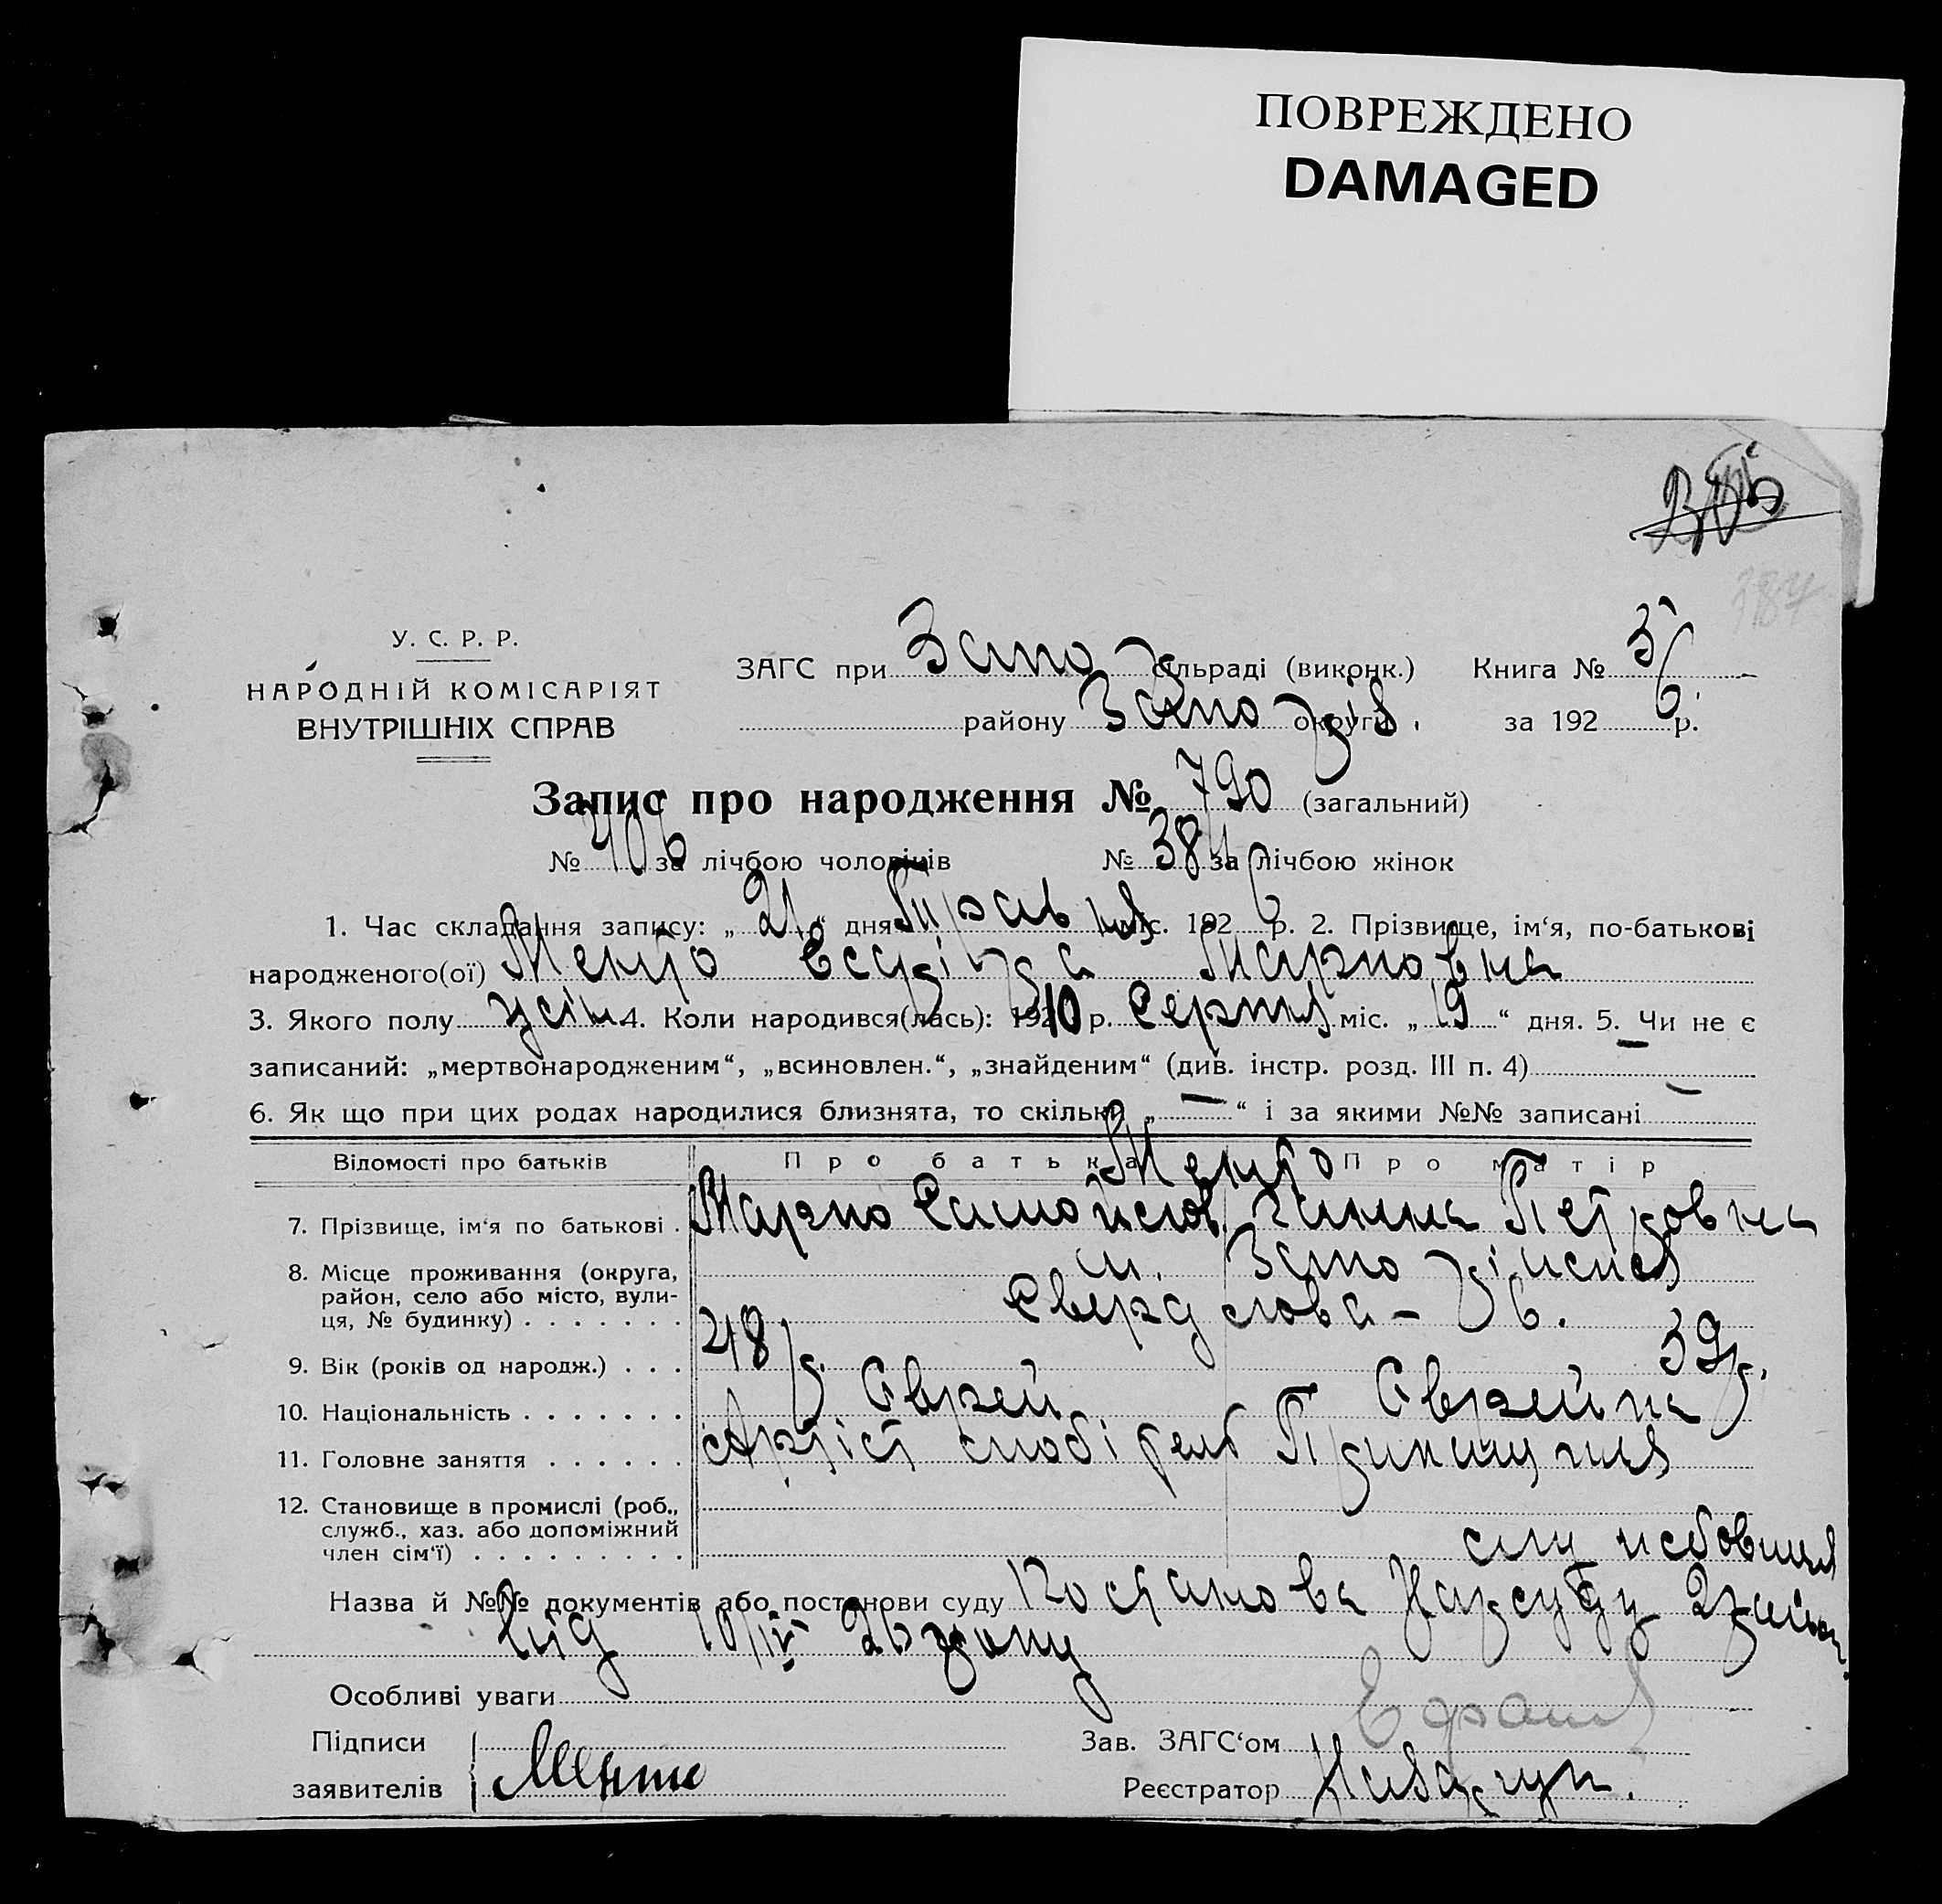 ПОВРЕЖДЕНО
DAMAGED
387
У. С. Р. Р.
НАРОДНІЙ КОМІСАРІЯТ
ВНУТРІШНІХ СПРАВ
ЗАГС при Запо сільраді (виконк.) Книга № 3
району Запо округи за 192 6 р.
Запис про народження № 790 (загальний)
№ 406 за лічбою чоловіків № 384 за лічбою жінок
1. Час складання запису: „ 21 “ дня Травня міс. 192 6 р. 2. Прізвище, ім‘я, по-батькові
народженого(ої) Менто Марковна
3. Якого полу жін 4. Коли народився(лась): 1910 р. Серпня міс. „ 19 “ дня. 5. Чи не є
записаний: „мертвонародженим“, „всиновлен.“, „знайденим“ (див. інстр. розд. III п. 4) —
6. Як що при цих родах народилися близнята, то скільки „ — “ і за якими №№ записані —
Відомості про батьків Про батька Про матір
Менто
7. Прізвище, ім‘я по батькові . Марко Самойлов. Ганна Петровна
8. Місце проживання (округа, район, село або місто, вулиця, № будинку) . . . . . . . м. Запоріжжя
Свердлова – 36.
9. Вік (років од народж.) . . . 48 р. 39 р.
10. Національність . . . . . . . Єврей Єврейка
11. Головне заняття . . . . . . Артіст
12. Становище в промислі (роб., служб., хаз. або допоміжний член сім‘ї) . . . . . . . . .
Назва й №№ документів або постанови суду Постанова Нарсуду
від 10/IV 26 року
Особливі уваги
Підписи
заявителів Менто
Зав. ЗАГС‘ом
Реєстратор